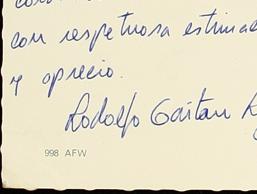 con respetuosa estimac
y aprecio.
Rodolfo Gaitan
998 AFW